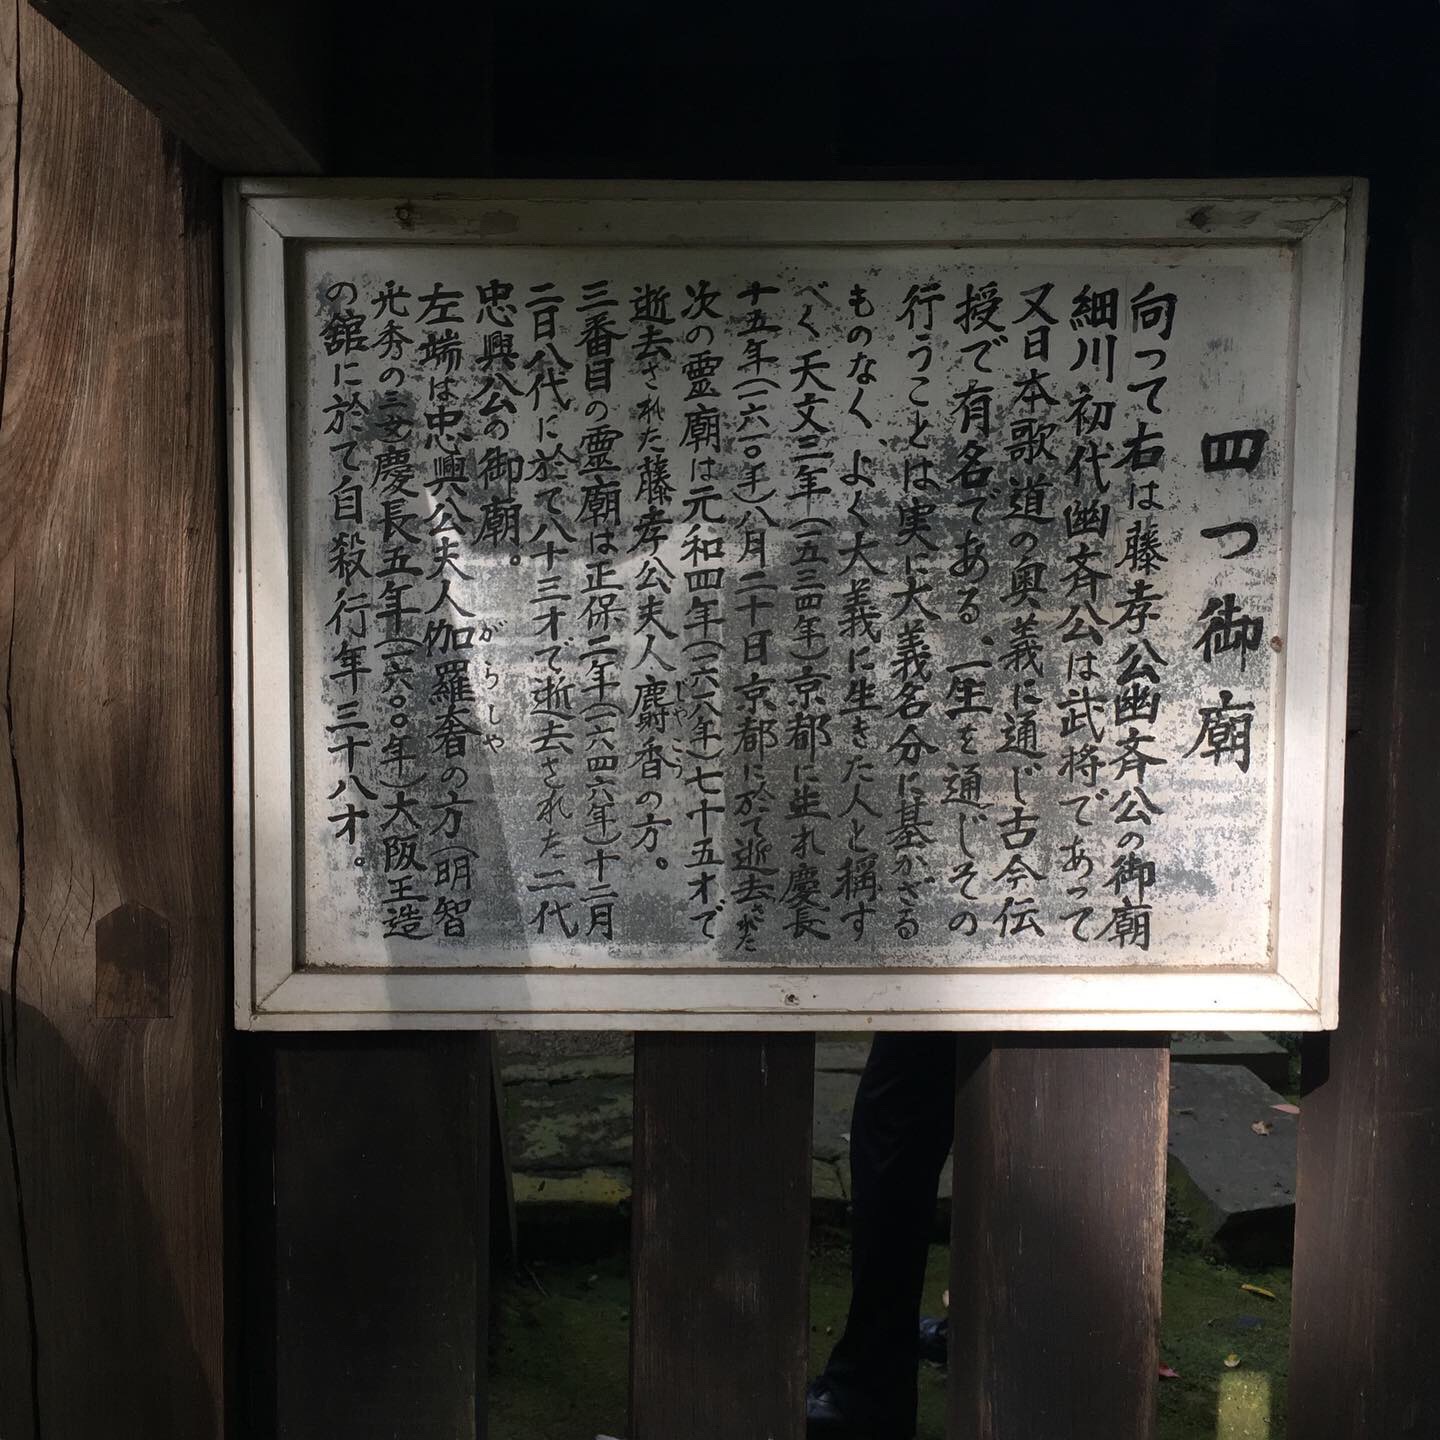 四つ御廟
向って右は藤孝公幽斉公の御廟
細川初代幽斉公は武将であって
又日本歌道の奥義に通じ古今伝
授で有名である、一生を通じその
行うことは実に大義名分に基かざる
ものなく、よく大義に生きた人と稱す
べく天文三年(一五三四年)京都に生れ慶長
十五年(一六一〇年)八月二十日京都に於て逝去された
次の霊廟は元和四年(一六一八年)七十五才で
逝去された藤孝公夫人麝香の方。
じやこう
三番目の霊廟は正保二年(一六四六年)十二月
二日八代に於て八十三才で逝去された二代
忠興公の御廟。
がらしや
左端は忠興公夫人伽羅奢の方(明智
光秀の三女慶長五年(一六〇〇年)大阪玉造
の舘に於て自殺行年三十八才。